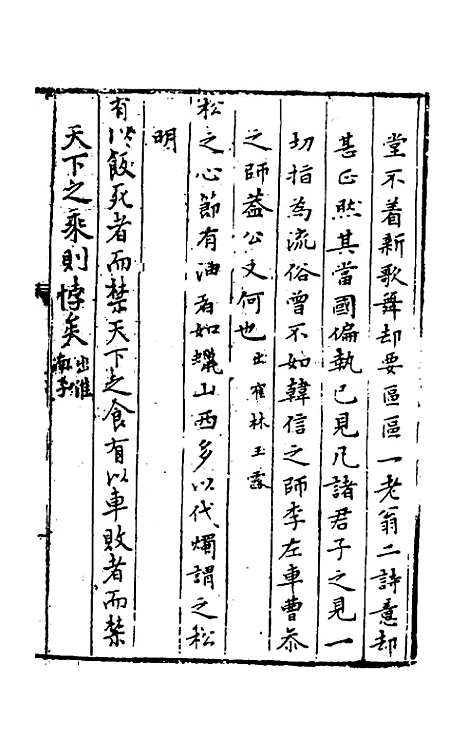 堂不着新歌舞却要區區一老翁二詩意却
甚正然其當國偏執己見凡諸君子之見一
切指為流俗曾不如韓信之師李左車曹叅
之師蓋公又何也出雀林玉露
松之心節有油者如蠟山西多以代燭謂之松
明
有以飯死者而禁天下之食有以車敗者而禁
天下之乘則悖矣出淮南子